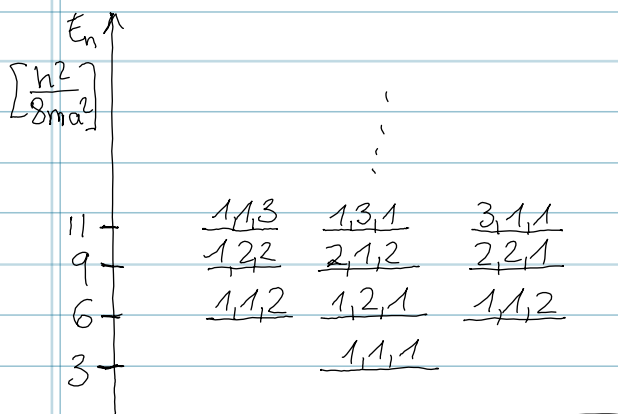 Eₙ
[h²/8ma²]
11 1,1,3 1,3,1 3,1,1
9 1,2,2 2,1,2 2,2,1
6 1,1,2 1,2,1 1,1,2
3 1,1,1